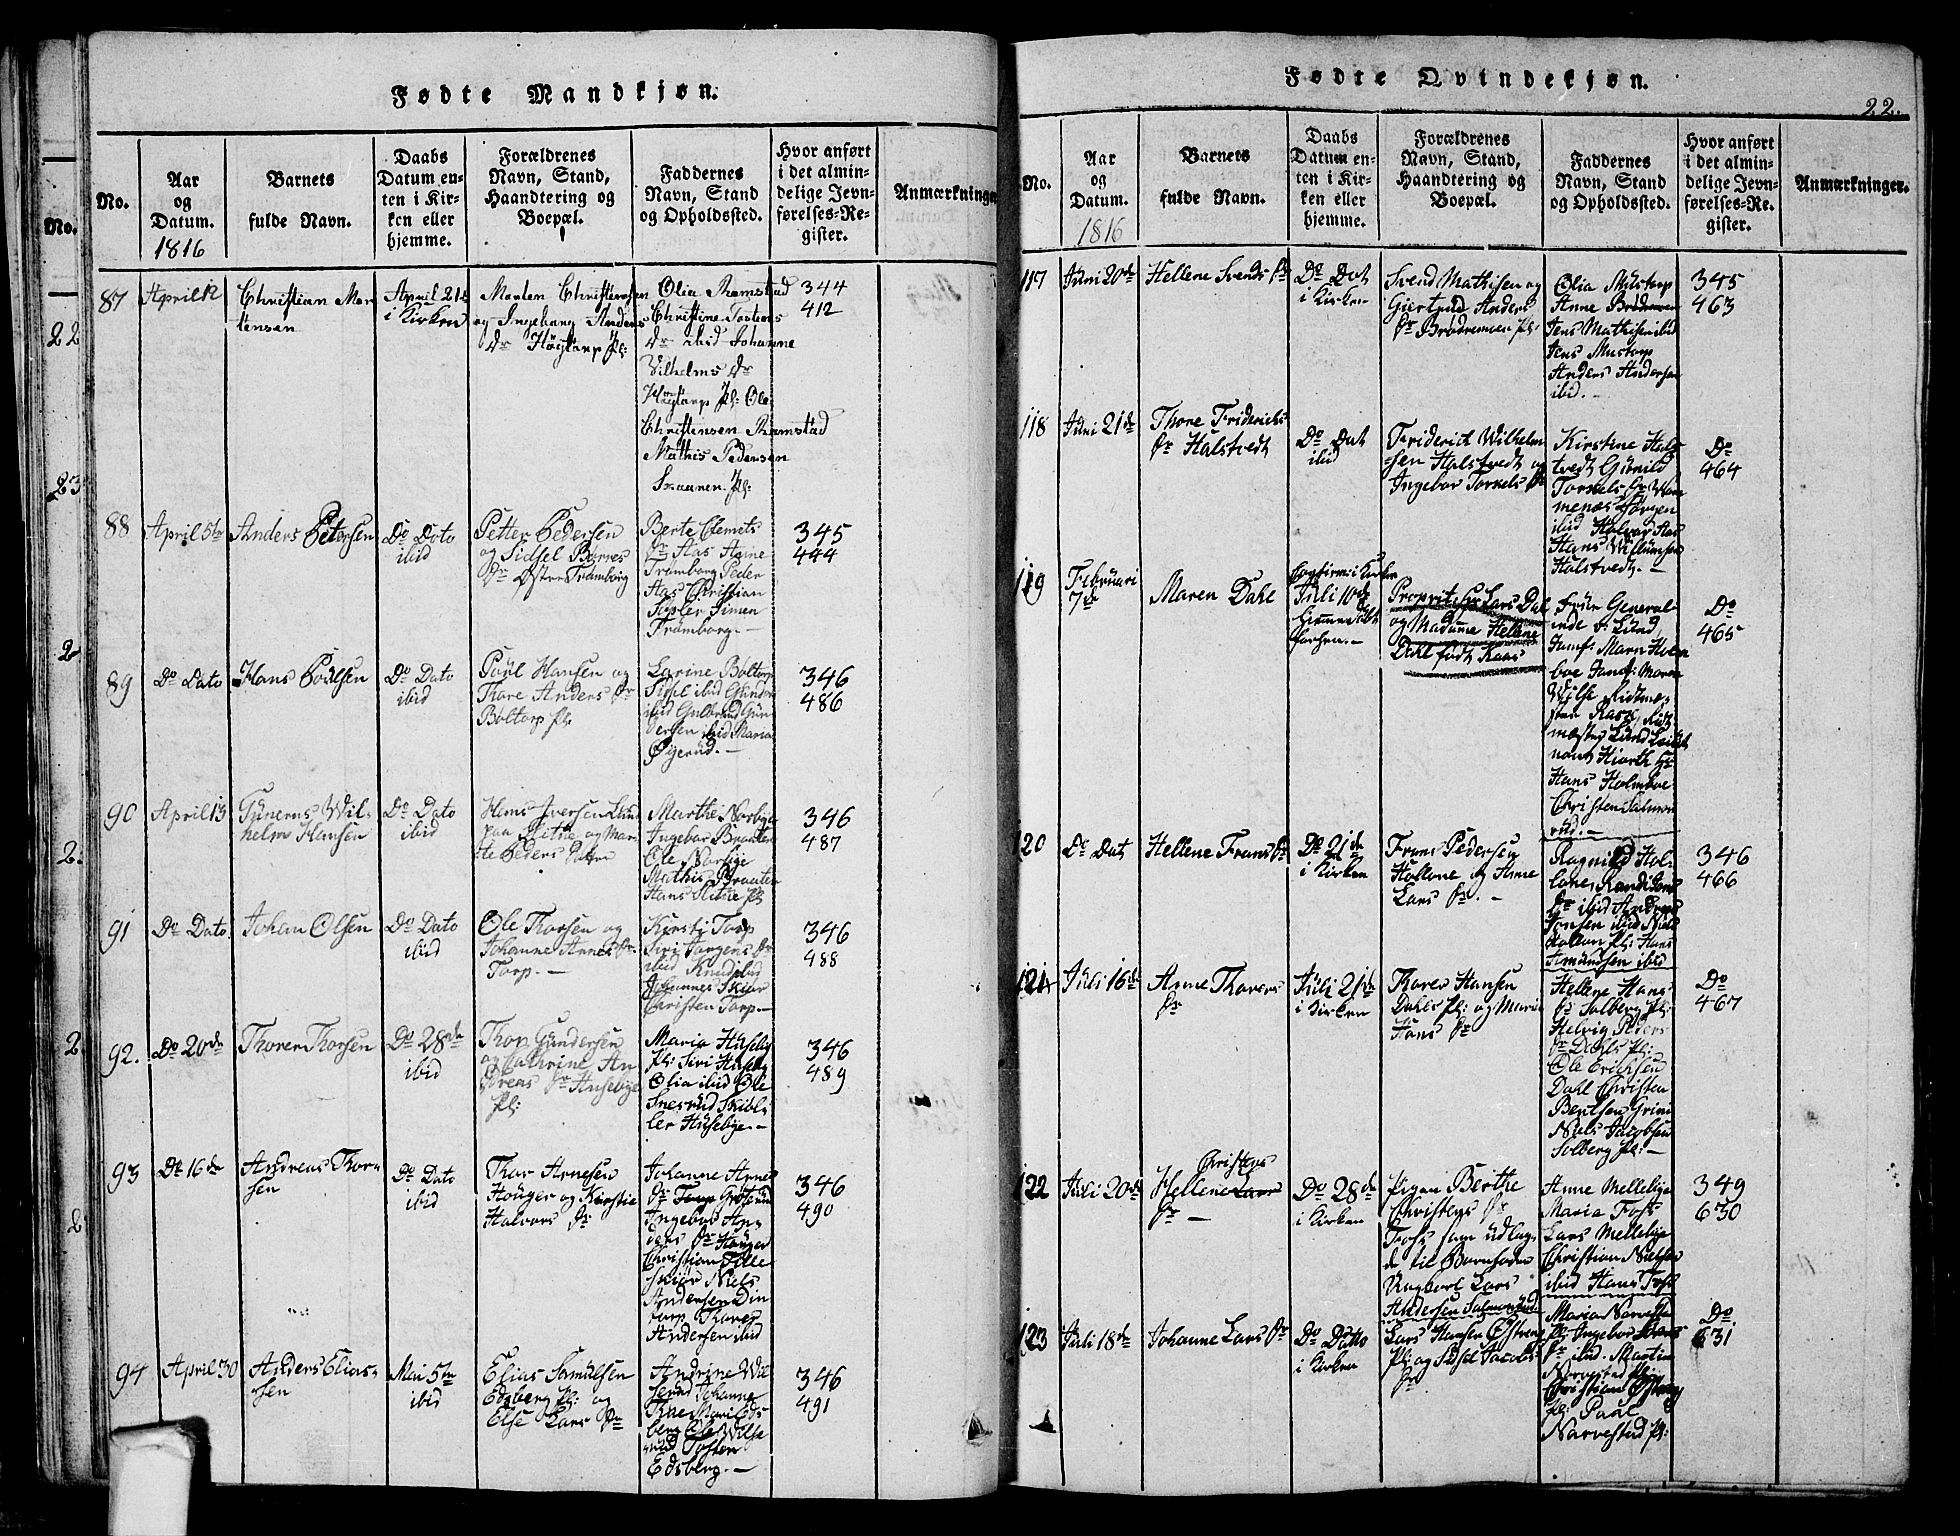 Fødte Mandkjøn.
No.
Aar
og
Datum.
1816
Barnets
fulde Navn.
Daabs
Datum en-
ten i Kir-
ken eller
hjemme.
Forældrenes
Navn, Stand,
Haandtering og
Boepæl.
Faddernes
Navn, Stand
og Opholdssted.
Hvor anført
i det almin-
delige Jevn-
førelses-Re-
gister.
Anmærkninger
87
April 12
Christian Mor
tensen
April 21de
i Kirken
Morten Christensen
og Ingeborg Anders
Dr Høytorp Pl:
Olia Ramstad
Christine Tostens
Dr ibid Johanne
Vilhelms Dr
Høytorp Pl: Ole
Christensen Ramstad
Mathis Pedersen
Skaanen Pl:
344
412
88
April 5te
Anders Petersen
Do Dato
ibid
Petter Pedersen
og Sidsel Børres
Dr Østre Tramborg
Berte Clemets
Dr Aas Anne
Tramborg Peder
Aas Christian
Topler Simen
Tramborg. –
345
444
89
Do Dato
Hans Poulsen
Do Dato
ibid
Poul Hansen og
Thore Anders Dr
Boltorp Pl:
Larine Boltorp
Sissel ibid Gunder
ibid Gulbrand Gun
dersen ibid Maria
Øgerud. –
346
486
90
April 13
Wil-
helm Hansen
Do Dato
ibid
Hans Iversen Lund
paa Slitue og Mar-
te Peders Datter
Marthe Norbye
Ingebor Braaten
Ole Norbye
Mathis Braaten
Hans Slitue Pl:
346
487
91
Do Dato
Johan Olsen
Do Dato
ibid
Ole Thorsen og
Johanne Arnes Dr
Torp. –
Kirsti Torp
Siri Jørgens Dr
ibid Knud ibid
Johannes Skiør
Christen Torp –
346
488
92.
Do 20de
Thoren Thorsen
Do 28de
ibid
Thor Gundersen
og Cathrine An
dreas Dr Husebye
Pl:
Maria Huseby
Pl: Siri Huseby
Olia ibid Ole
Snerud Skibli
ler Husebye. –
346
489
93
Do 16de
Andreas Thor-
sen
Do Dato
ibid
Thor Arnesen
Houger og Kirstie
Halvors Dr
Johanne Arnes
Dr Torp
Ingebor An-
ders Dr Houger
Christian Tille
skiør Niels
Andersen Din
torp Thorer
Andersen ibid
346
490
94
April 30
Anders Elias-
sen
Mai 5te
ibid
Elias Samuelsen
Edsberg Pl: og
Else Lars Dr
Andrine Wil
serud Johanne
Thore Mari Eds
berg Ole Wilse
rud Tosten
Edsberg. –
346
491
No.
22
23
2
2.
2.
2
Fødte Qvindekjøn.
22.
No.
Aar
og
Datum.
1816
Barnets
fulde Navn.
Daabs
Datum en-
ten i Kir-
ken eller
hjemme.
Forældrenes
Navn, Stand,
Haandtering og
Boepæl.
Faddernes
Navn, Stand
og Opholdssted.
Hvor anført
i det almin-
delige Jevn-
førelses-Re-
gister.
Anmærkninger.
117
Juni 20de
Hellene Svends Dr
Do Dat
i Kirken
Svend Mathisen og
Giertrud Anders
Dr Brødremoen Pl:
Olia Mustorp
Anne Brødemoen
Jens Mathisen ibid
Jens Mustorp
Anders Andersen
ibid. –
345
463
118
Juni 21de
Thore Friderichs
Dr Halstvedt
Do Dat
ibid
Friderich Wilhelm
sen Halstvedt og
Ingebor Torkels Dr
Kirstine Hals-
tvedt Gunild
Torkels Dr Wom
menæs Jørgen
ibid Halvor Aas
Hans Willumsen
Halstvedt. –
Do
464
119
Februari
7de
Maren Dahl
Confirm: i Kirken
Juli 10de
Hiemmedøbt
Propritær Lars Dal
og Madame Hellene
Dahl født Kaas
Frue General-
inde v: Lund
Jomf: Maren Holm
boe Jomf: Maren
Wilse Ridtme-
ster Kaas, Ridt
mæster Lund Leüt
nant Hiorth Hr
Hans Holmboe
Christen Salmon
rud. –
Do
465
120
Do Dat
Hellene Frans Dr
Do 21de
i Kirken
Frans Pedersen
Hollone og Anne
Lars Dr. –
Ragnild Hol-
lone, Randi Jens
Dr ibid Andreas
Jensen ibid Niels
Holton Pl: Hans
Amundsen ibid
346
466
121
Juli 16de
Anne Thorers
Dr
Juli 21de
i Kirken
Thorer Hansen
Dahls Pl: og Marie
Hans Dr
Hellene Hans
Dr Solberg Pl:
Helvig Peders
Dr Dahls Pl:
Ole Erichsen
Dahl Christen
Bentsen Grini
Niels Jacobsen
Solberg Pl: –
Do
467
122
Juli 20de
Christens
Hellene Lars
Dr –
Do 28de
i Kirken
Pigen Berthe
Christens Dr
Foss som udlag-
de til Barnefader
Ungkarl Lars
Andersen Salmonrud
Anne Mellebye
Maria Foss
Lars Mellebye
Christian Nielsen
ibid Hans Foss
349
630
123
Juli 18de
Johanne Lars Dr
Do Datto
i Kirken
Lars Hansen Østreng
Pl: og Sissel Jacobs
Dr
Maria Narvestad
Pl: Ingebor Hans
Dr ibid. Martin
Narvestad Pl:
Christian Østreng
Pl: Paal
Narvestad Pl:
Do
631